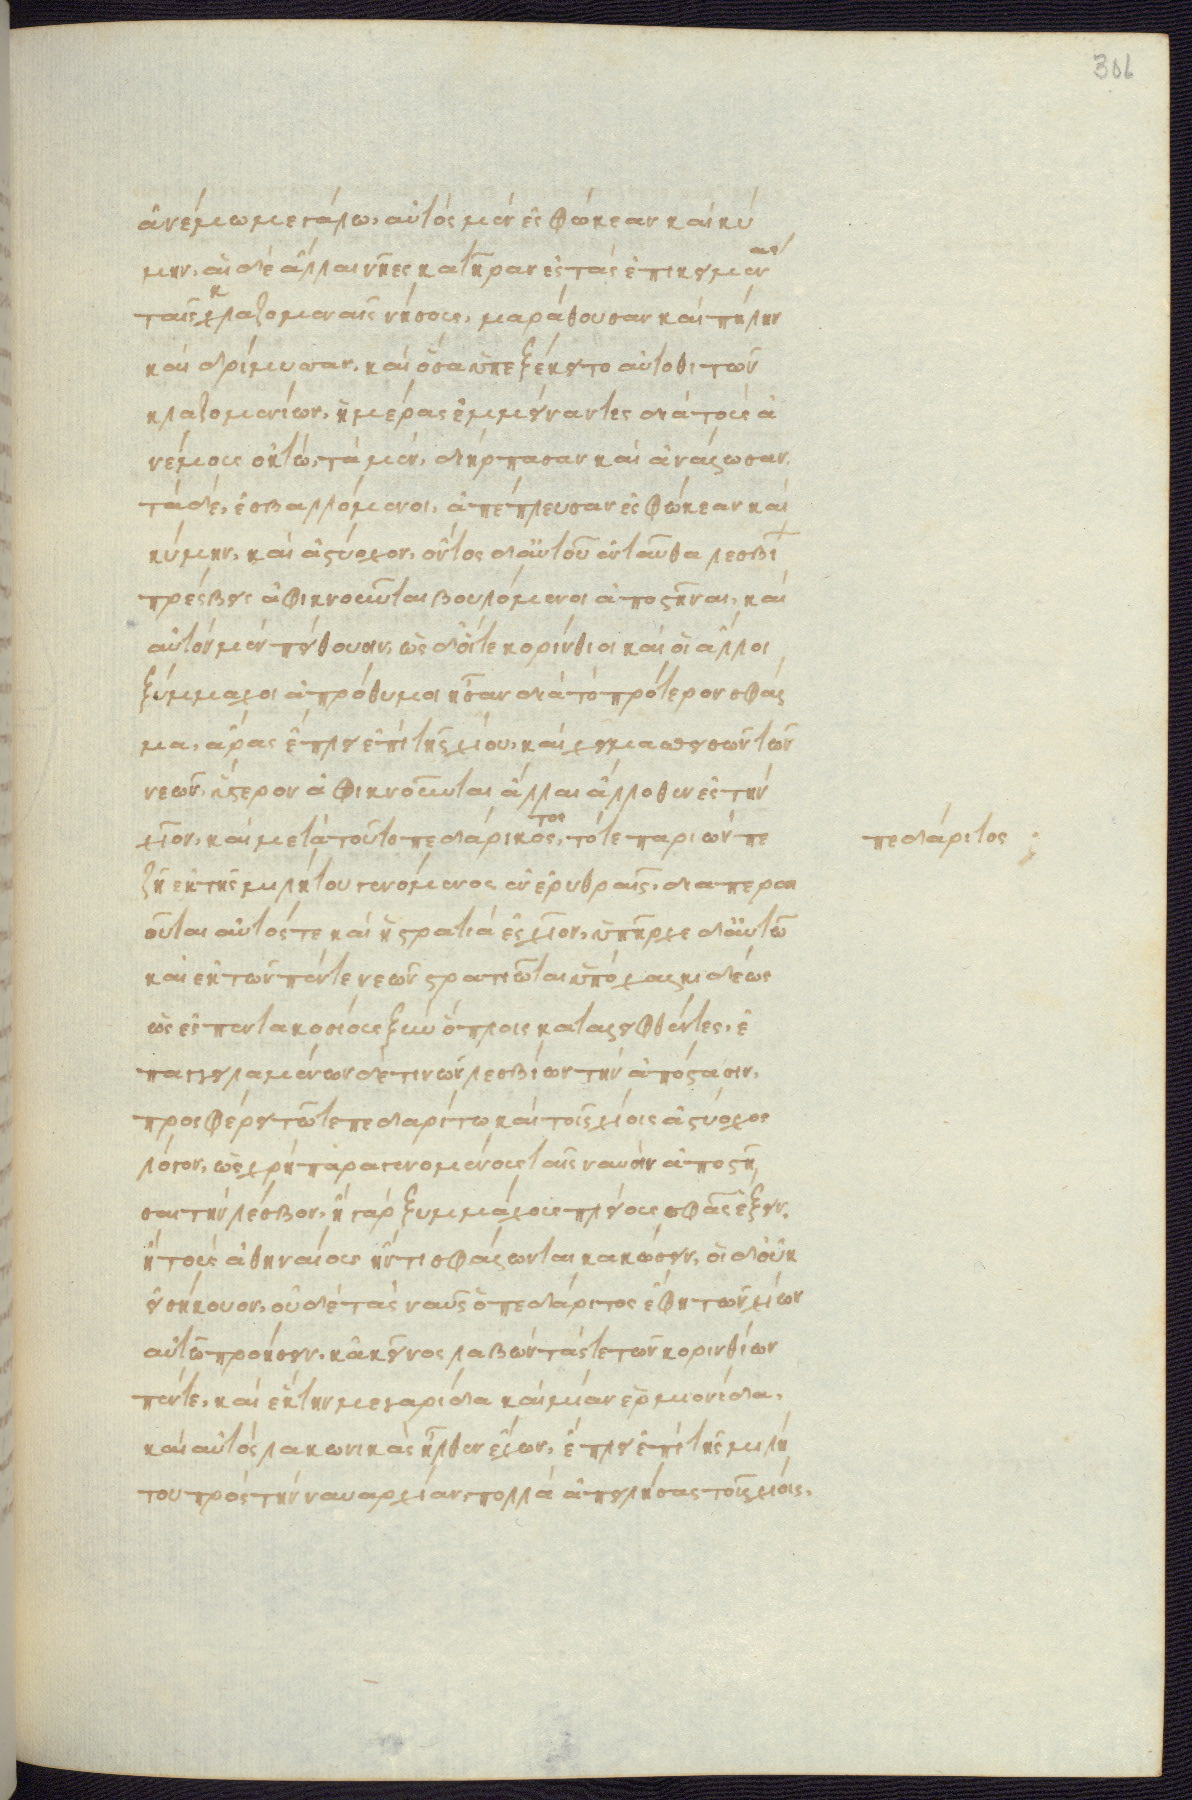 306
ἀνέμω μεγάλω, αὐτὸς μὲν ἐς φώκεαν καὶ κύ
μην. αἱ δὲ ἄλλαι νῆες κατῆραν ἐς τὰς ἐπικειμέν
ταῖς κλαζομεναῖς νήσους, μαράθουσαν καὶ πήλην
καὶ δρίμυσαν. καὶ ὅσα ὑπεξέκειτο αὐτόθι τῶν
κλαζομενίων, ἡμέρας ἐμμείναντες διὰ τοὺς ἀ
νέμους ὀκτώ, τὰ μὲν, διήρπασαν καὶ ἀνάλωσαν.
τὰ δὲ, ἐσβαλλόμενοι, ἀπέπλευσαν ἐς φώκεαν καὶ
κύμην, καὶ ἀστύοχον. ὄντος δ' αὐτοῦ ἐνταῦθα λεσβί
πρέσβεις ἀφικνοῦνται βουλόμενοι ἀποστῆναι, καὶ
αὐτὸν μὲν πείθουσιν, ὡς δ' οἵτε κορίνθιοι καὶ οἱ ἄλλοι
ξύμμαχοι ἀπρόθυμοι ἦσαν διὰ τὸ πρότερον σφάς
μα, ἄρας ἔπλει ἐπὶ τῆς χίου, καὶ χειμασθεισῶν τῶν
νεῶν, ὕστερον ἀφικνοῦνται ἄλλαι ἄλλοθεν ἐς τὴν
χίον, καὶ μετὰ τοῦτο πεδάρικος, τότε παριὼν πε
τος
πεδάριτος
ζῆ ἐκ τῆς μιλήτου γενόμενος ἐν ἐρυθραῖς, διαπεραι
οῦται αὐτός τε καὶ ἡ στρατιὰ ἐς χίον, ὑπῆρχε δ' αὐτῶ
καὶ ἐκ τῶν πέντε νεῶν στρατιῶται ὑπὸ χαλκιδέως
ὡς ἐς πεντακοσίους ξὺν ὅπλοις καταλειφθέντες, ἐ
παγγειλαμένων δέ τινων λεσβίων τὴν ἀπόστασιν,
προσφέρει τῶτε πεδαρίτω καὶ τοῖς χίοις ἀστύοχος
λόγον, ὡς χρὴ παραγενομένους ταῖς ναυσὶν ἀποστῆ
σαι τὴν λέσβον, ἢ γὰρ ξυμμάχους πλείους σφᾶς ἕξειν.
ἢ τοὺς ἀθηναίους ἤν τι σφάλλωνται κακώσειν, οἱ δ' οὐκ
ἐσήκουον, οὐδὲ τὰς ναῦς ὁ πεδάριτος ἔφη τῶν χίων
αὐτῶ προήσειν, κἀκεῖνος λαβὼν τάς τε τῶν κορινθίων
πέντε, καὶ ἕκτην μεγαρίδα καὶ μίαν ἑρμιονίδα,
καὶ αὐτὸς λακωνικὰς ἦλθεν ἔχων, ἔπλει ἐπὶ τῆς μιλή
του πρὸς τὴν ναυαρχίαν, πολλὰ ἀπειλήσας τοῖς χίοις,